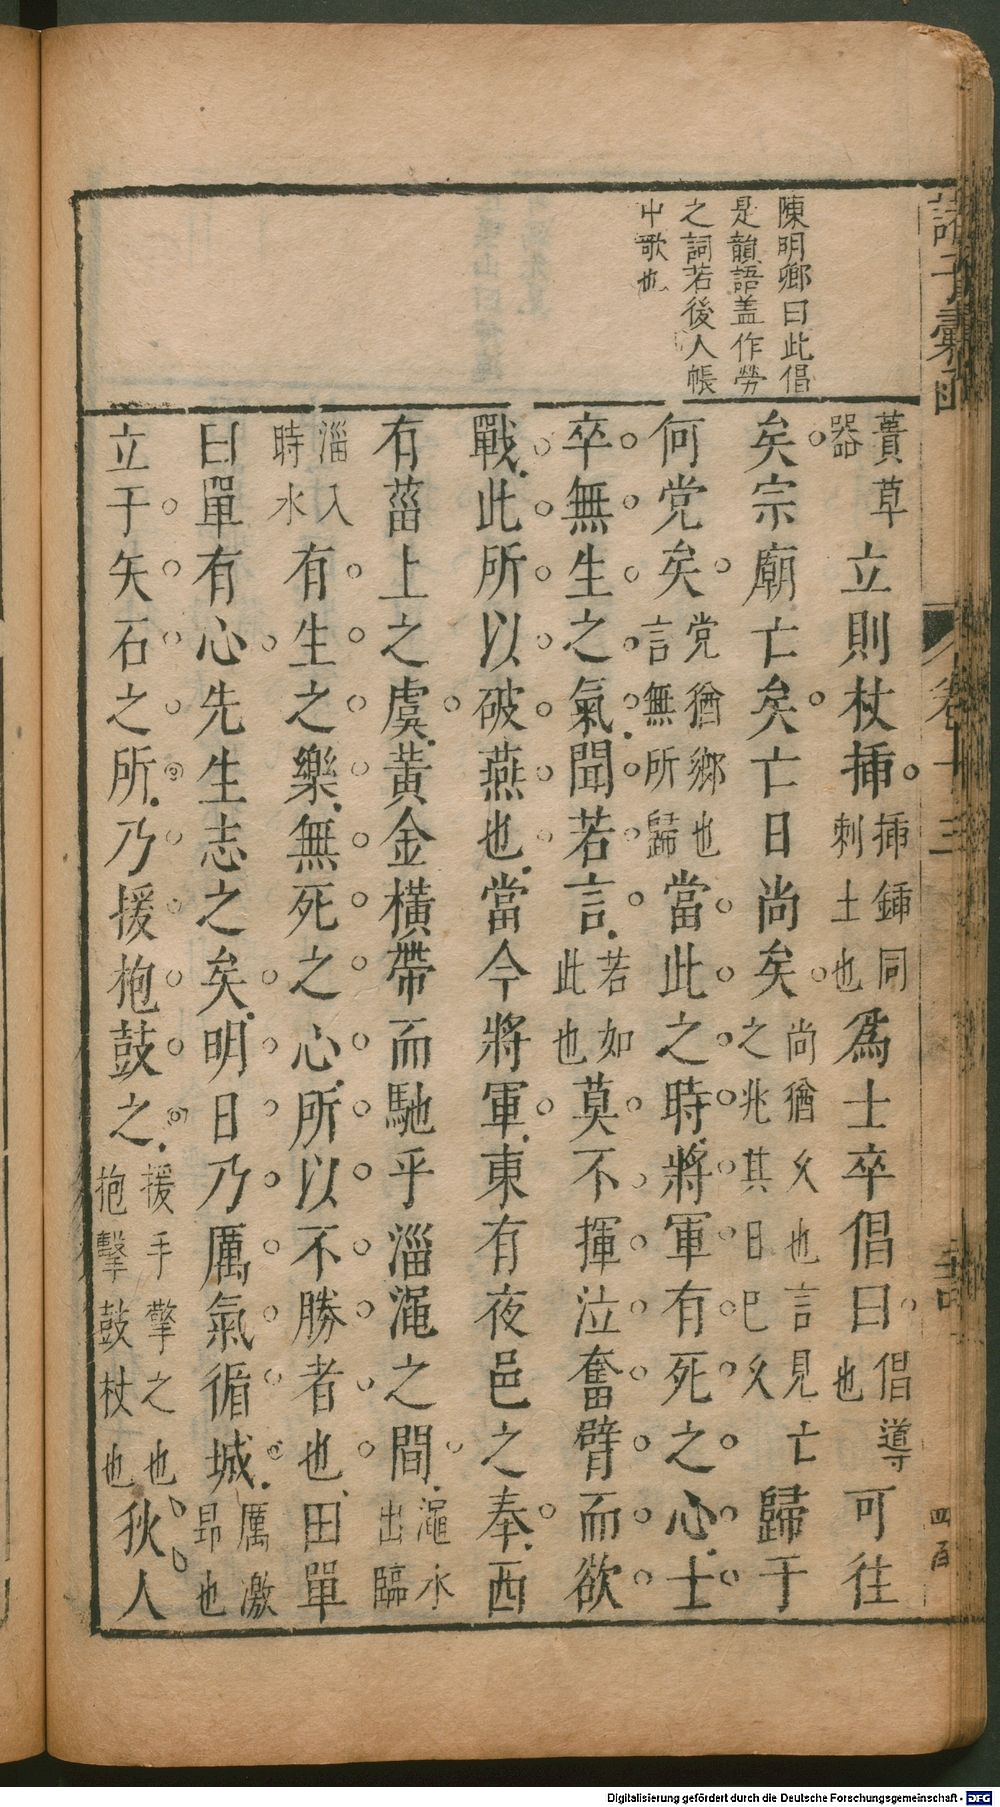 諸子彙函
卷十三
四百
陳明卿曰此倡
是韻語盖作勞
之詞若後人帳
中歌也
蕢草器立則杖揷揷鍤同刺土也為士卒倡曰倡導也可往
矣宗廟亡矣亡日尚矣尚猶久也言見亡之兆其日已久歸于
何党矣党猶鄉也言無所歸當此之時將軍有死之心士
卒無生之氣聞若言若如此也莫不揮泣奮臂而欲
戰此所以破燕也當今將軍東有夜邑之奉西
有菑上之虞黃金橫帶而馳乎淄澠之間澠水出臨
淄入時水有生之樂無死之心所以不勝者也田單
曰單有心先生志之矣明日乃厲氣循城厲激昂也
立于矢石之所乃援枹鼓之援手擎之也枹擊鼓杖也狄人
Digitalisierung gefördert durch die Deutsche Forschungsgemeinschaft - DFG